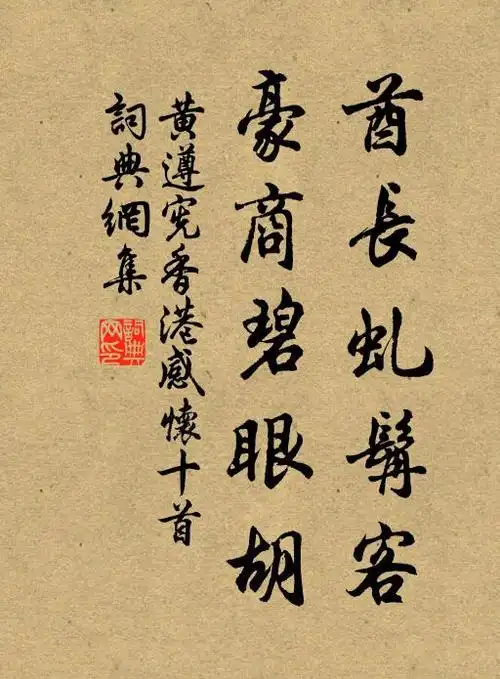 酋長虬髯客
豪商碧眼胡
黄遵宪香港感懷十首
詞典網集
詞典网印